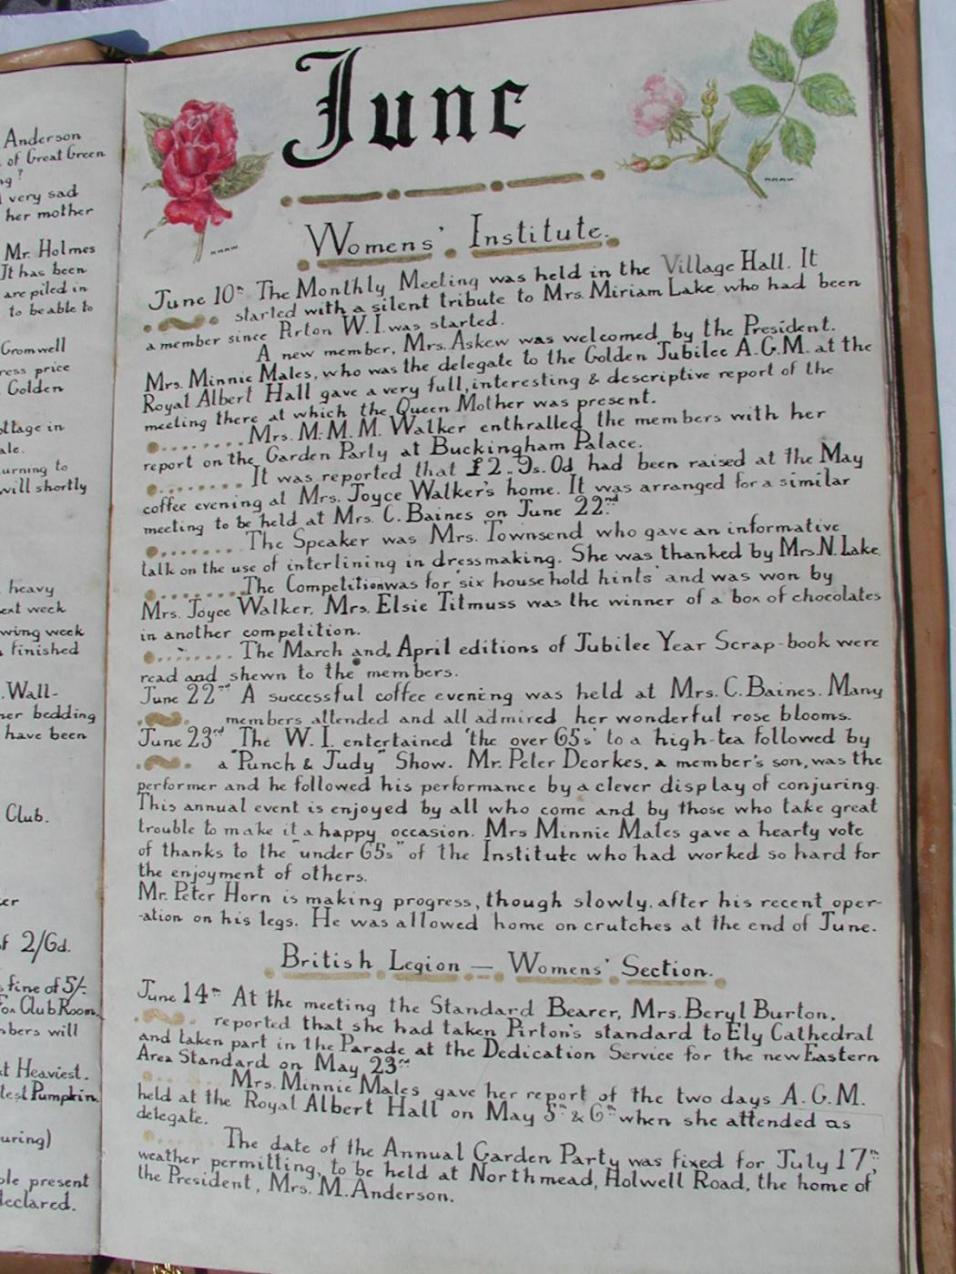 Anderson
of Great Green
very sad
her mother
Mr. Holmes
It has been
are piled in
to be able to
Cromwell
price
Golden
in
to
will shortly
heavy
week
week
finished
Wall-
bedding
have been
Club.
of 2/6d.
fine of 5/-
Fox Club Room
will
Heaviest.
Pumpkin
present
declared.
June
Womens' Institute.
June 10th The Monthly Meeting was held in the Village Hall. It
started with a silent tribute to Mrs. Miriam Lake who had been
a member since Pirton W.I. was started.
A new member, Mrs. Askew was welcomed by the President.
Mrs. Minnie Males, who was the delegate to the Golden Jubilee A.G.M. at the
Royal Albert Hall gave a very full, interesting & descriptive report of the
meeting there at which the Queen Mother was present.
Mrs. M.M.M. Walker enthralled the members with her
report on the Garden Party at Buckingham Palace.
It was reported that £2.9s.0d had been raised at the May
coffee evening at Mrs. Joyce Walker's home. It was arranged for a similar
meeting to be held at Mrs. C. Baines on June 22nd
The Speaker was Mrs. Townsend who gave an informative
talk on the use of interlining in dressmaking. She was thanked by Mrs. N. Lake
The Competition was for 'six household hints' and was won by
Mrs. Joyce Walker. Mrs. Elsie Titmuss was the winner of a box of chocolates
in another competition.
The March and April editions of Jubilee Year Scrap-book were
read and shewn to the members.
June 22nd A successful coffee evening was held at Mrs. C. Baines. Many
members attended and all admired her wonderful rose blooms.
June 23rd The W.I. entertained 'the over 65s' to a high-tea followed by
a "Punch & Judy" Show. Mr. Peter Deorkes, a member's son, was the
performer and he followed his performance by a clever display of conjuring.
This annual event is enjoyed by all who come and by those who take great
trouble to make it a happy occasion. Mrs Minnie Males gave a hearty vote
of thanks to the "under 65s" of the Institute who had worked so hard for
the enjoyment of others.
Mr. Peter Horn is making progress, though slowly, after his recent oper-
-ation on his legs. He was allowed home on crutches at the end of June.
British Legion — Womens' Section.
June 14th At the meeting the Standard Bearer, Mrs. Beryl Burton,
reported that she had taken Pirton's standard to Ely Cathedral
and taken part in the Parade at the Dedication Service for the new Eastern
Area Standard on May 23rd
Mrs. Minnie Males gave her report of the two days A.G.M.
held at the Royal Albert Hall on May 5th & 6th when she attended as
delegate.
The date of the Annual Garden Party was fixed for July 17th,
weather permitting, to be held at Northmead, Holwell Road, the home of
the President, Mrs. M. Anderson.